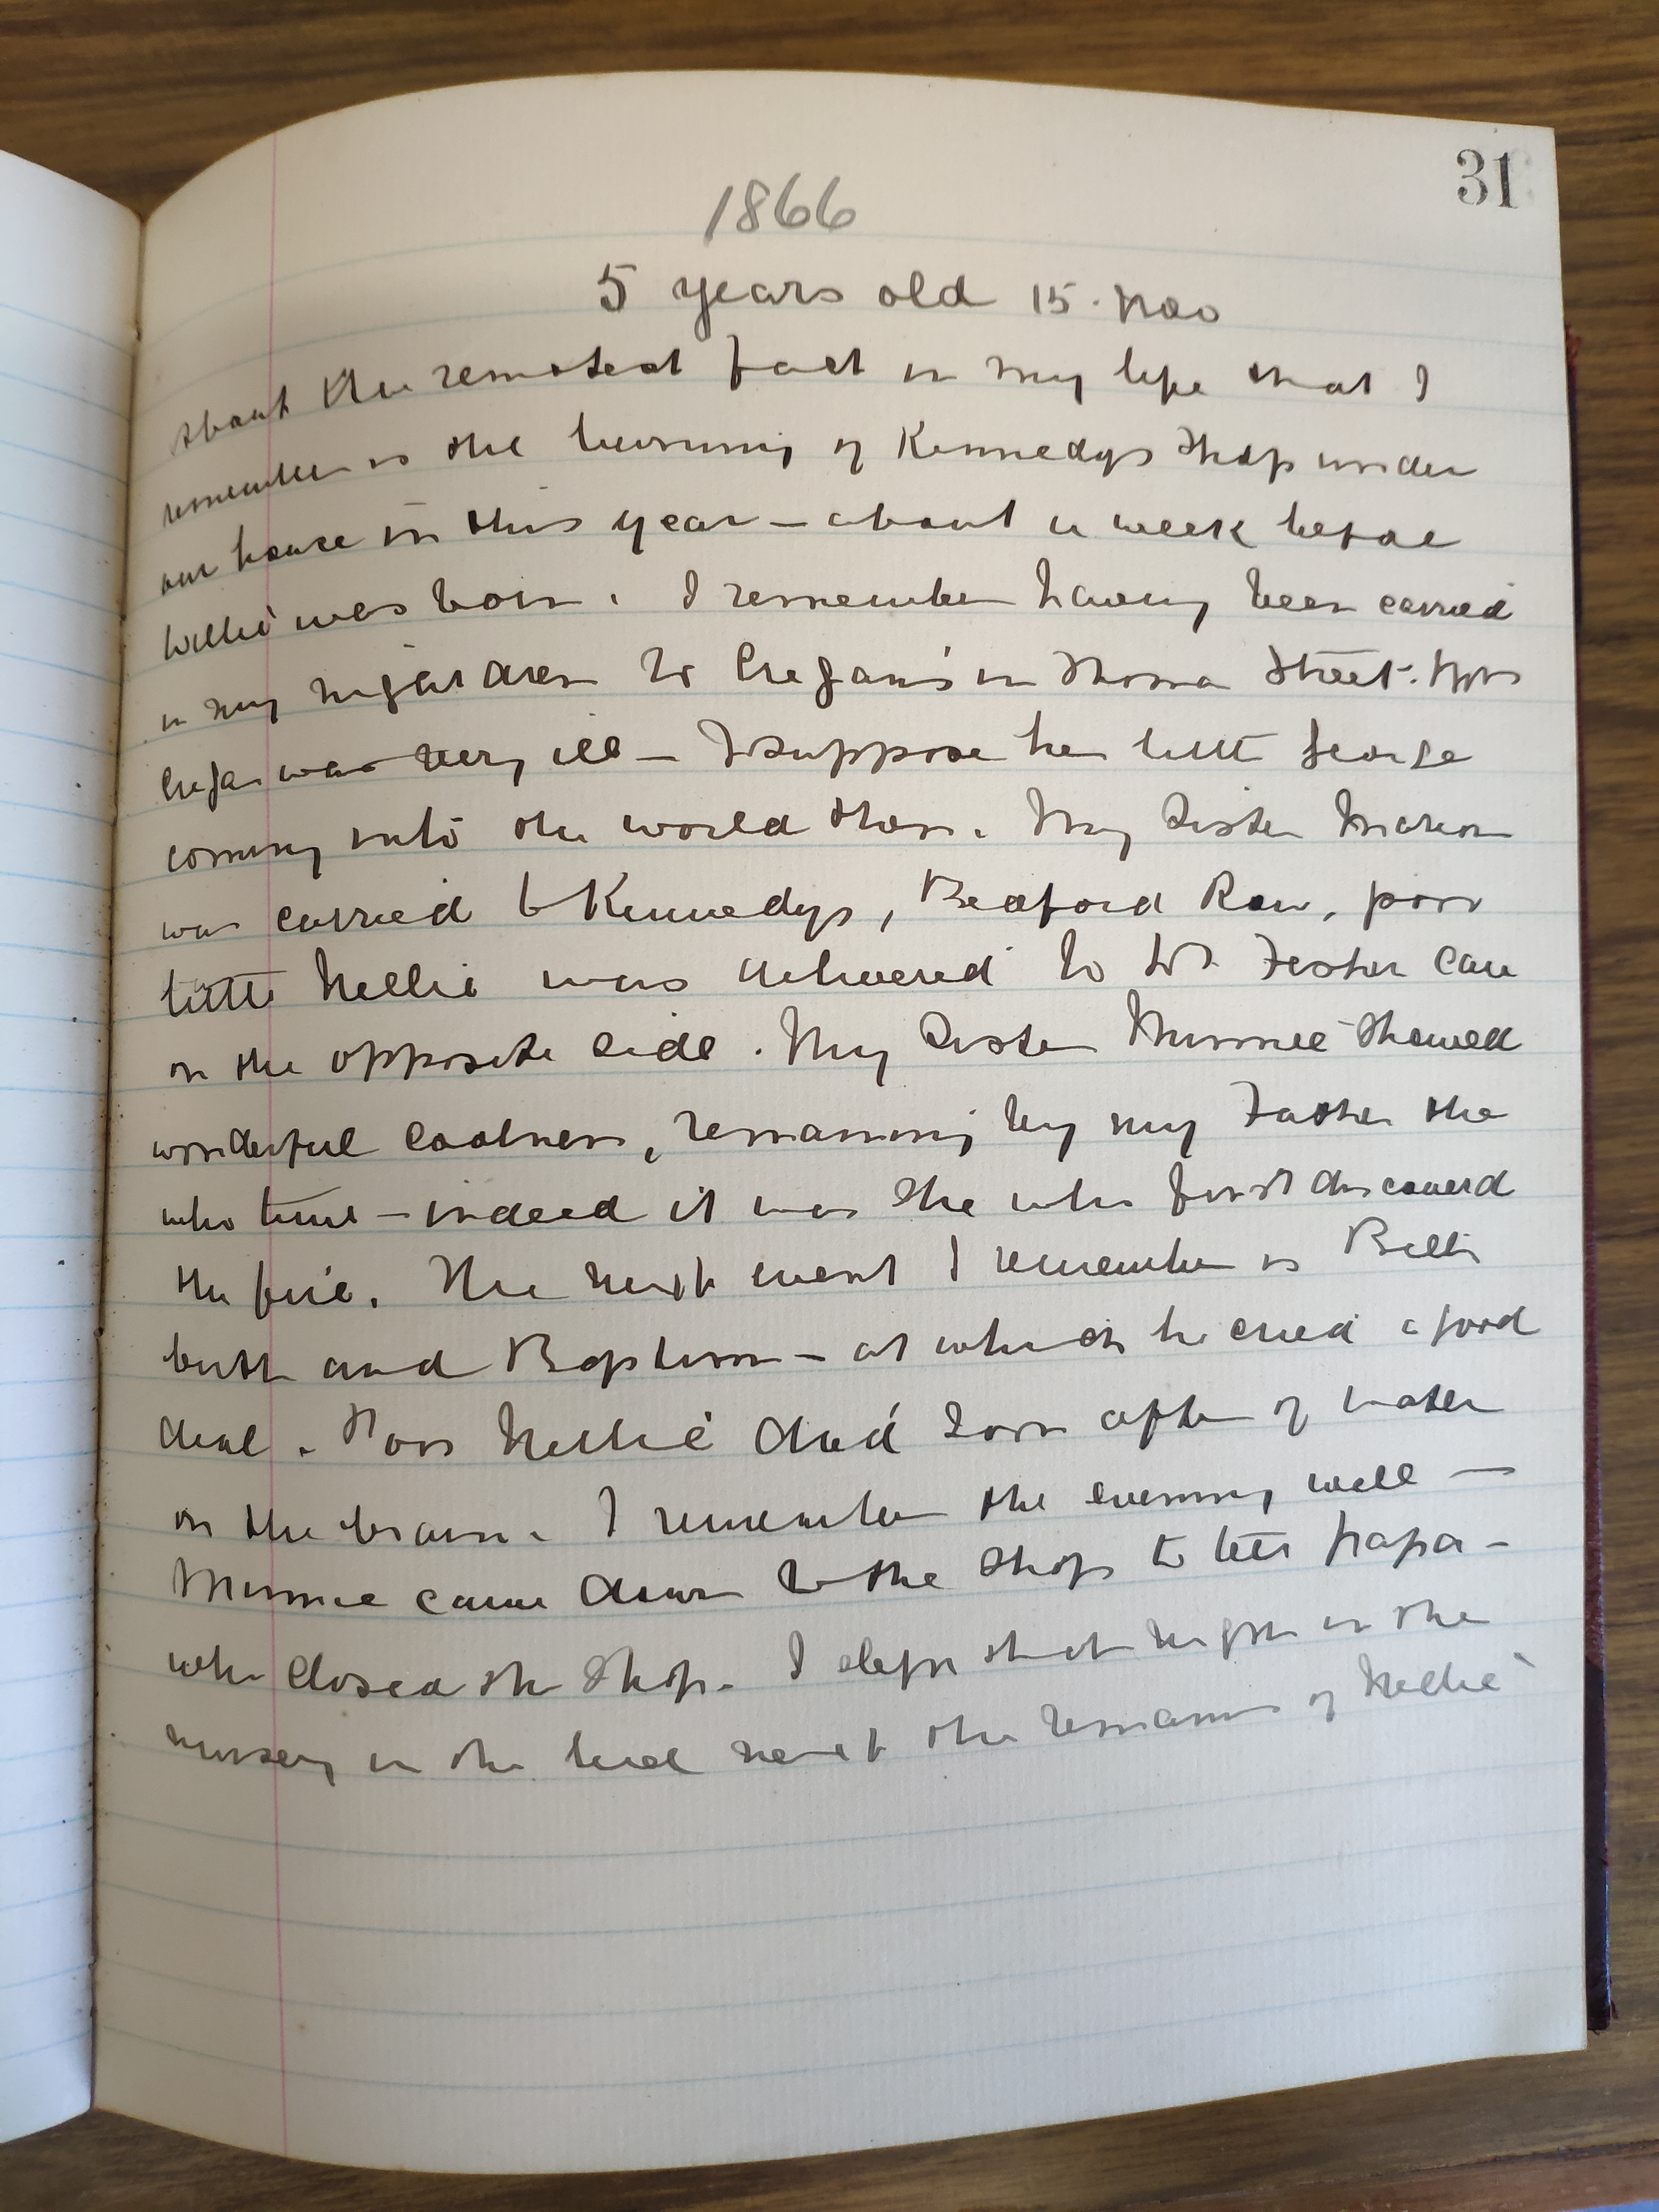 31
1866
5 years old 15. Nov
About the remotest fact in my life that I
remember is the burning of Kennedys Shop under
our house in this year – about a week before
Willie was born. I remember having been carried
in my night dress to Cregan's in Thomas Street. Mrs
Cregan was very ill – I suppose her little George
coming into the world then. My Sister Marion
was carried to Kennedys, Bedford Row, poor
little Nellie was delivered to Foster care
on the opposite side. My Sister Minnie showed
wonderful coolness, remaining by my Father the
who time – indeed it was she who first discovered
the fire. The next event I remember is Bill's
birth and Baptism – at which he cried a good
deal. Poor Nellie died soon after of water
on the brain. I remember the evening well —
Minnie came down to the Shop to tell Papa –
who closed the Shop. I slept that night in the
nursery in the bed next the remains of Nellie